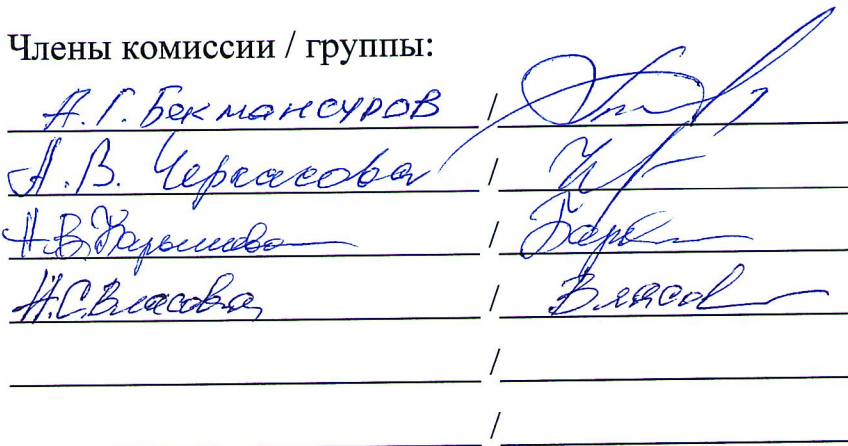 Члены комиссии / группы:
А.Г. Бекмансуров /
А.В. Черкасова /
Н.В. /
Н.С. Власова / Власов
/
/